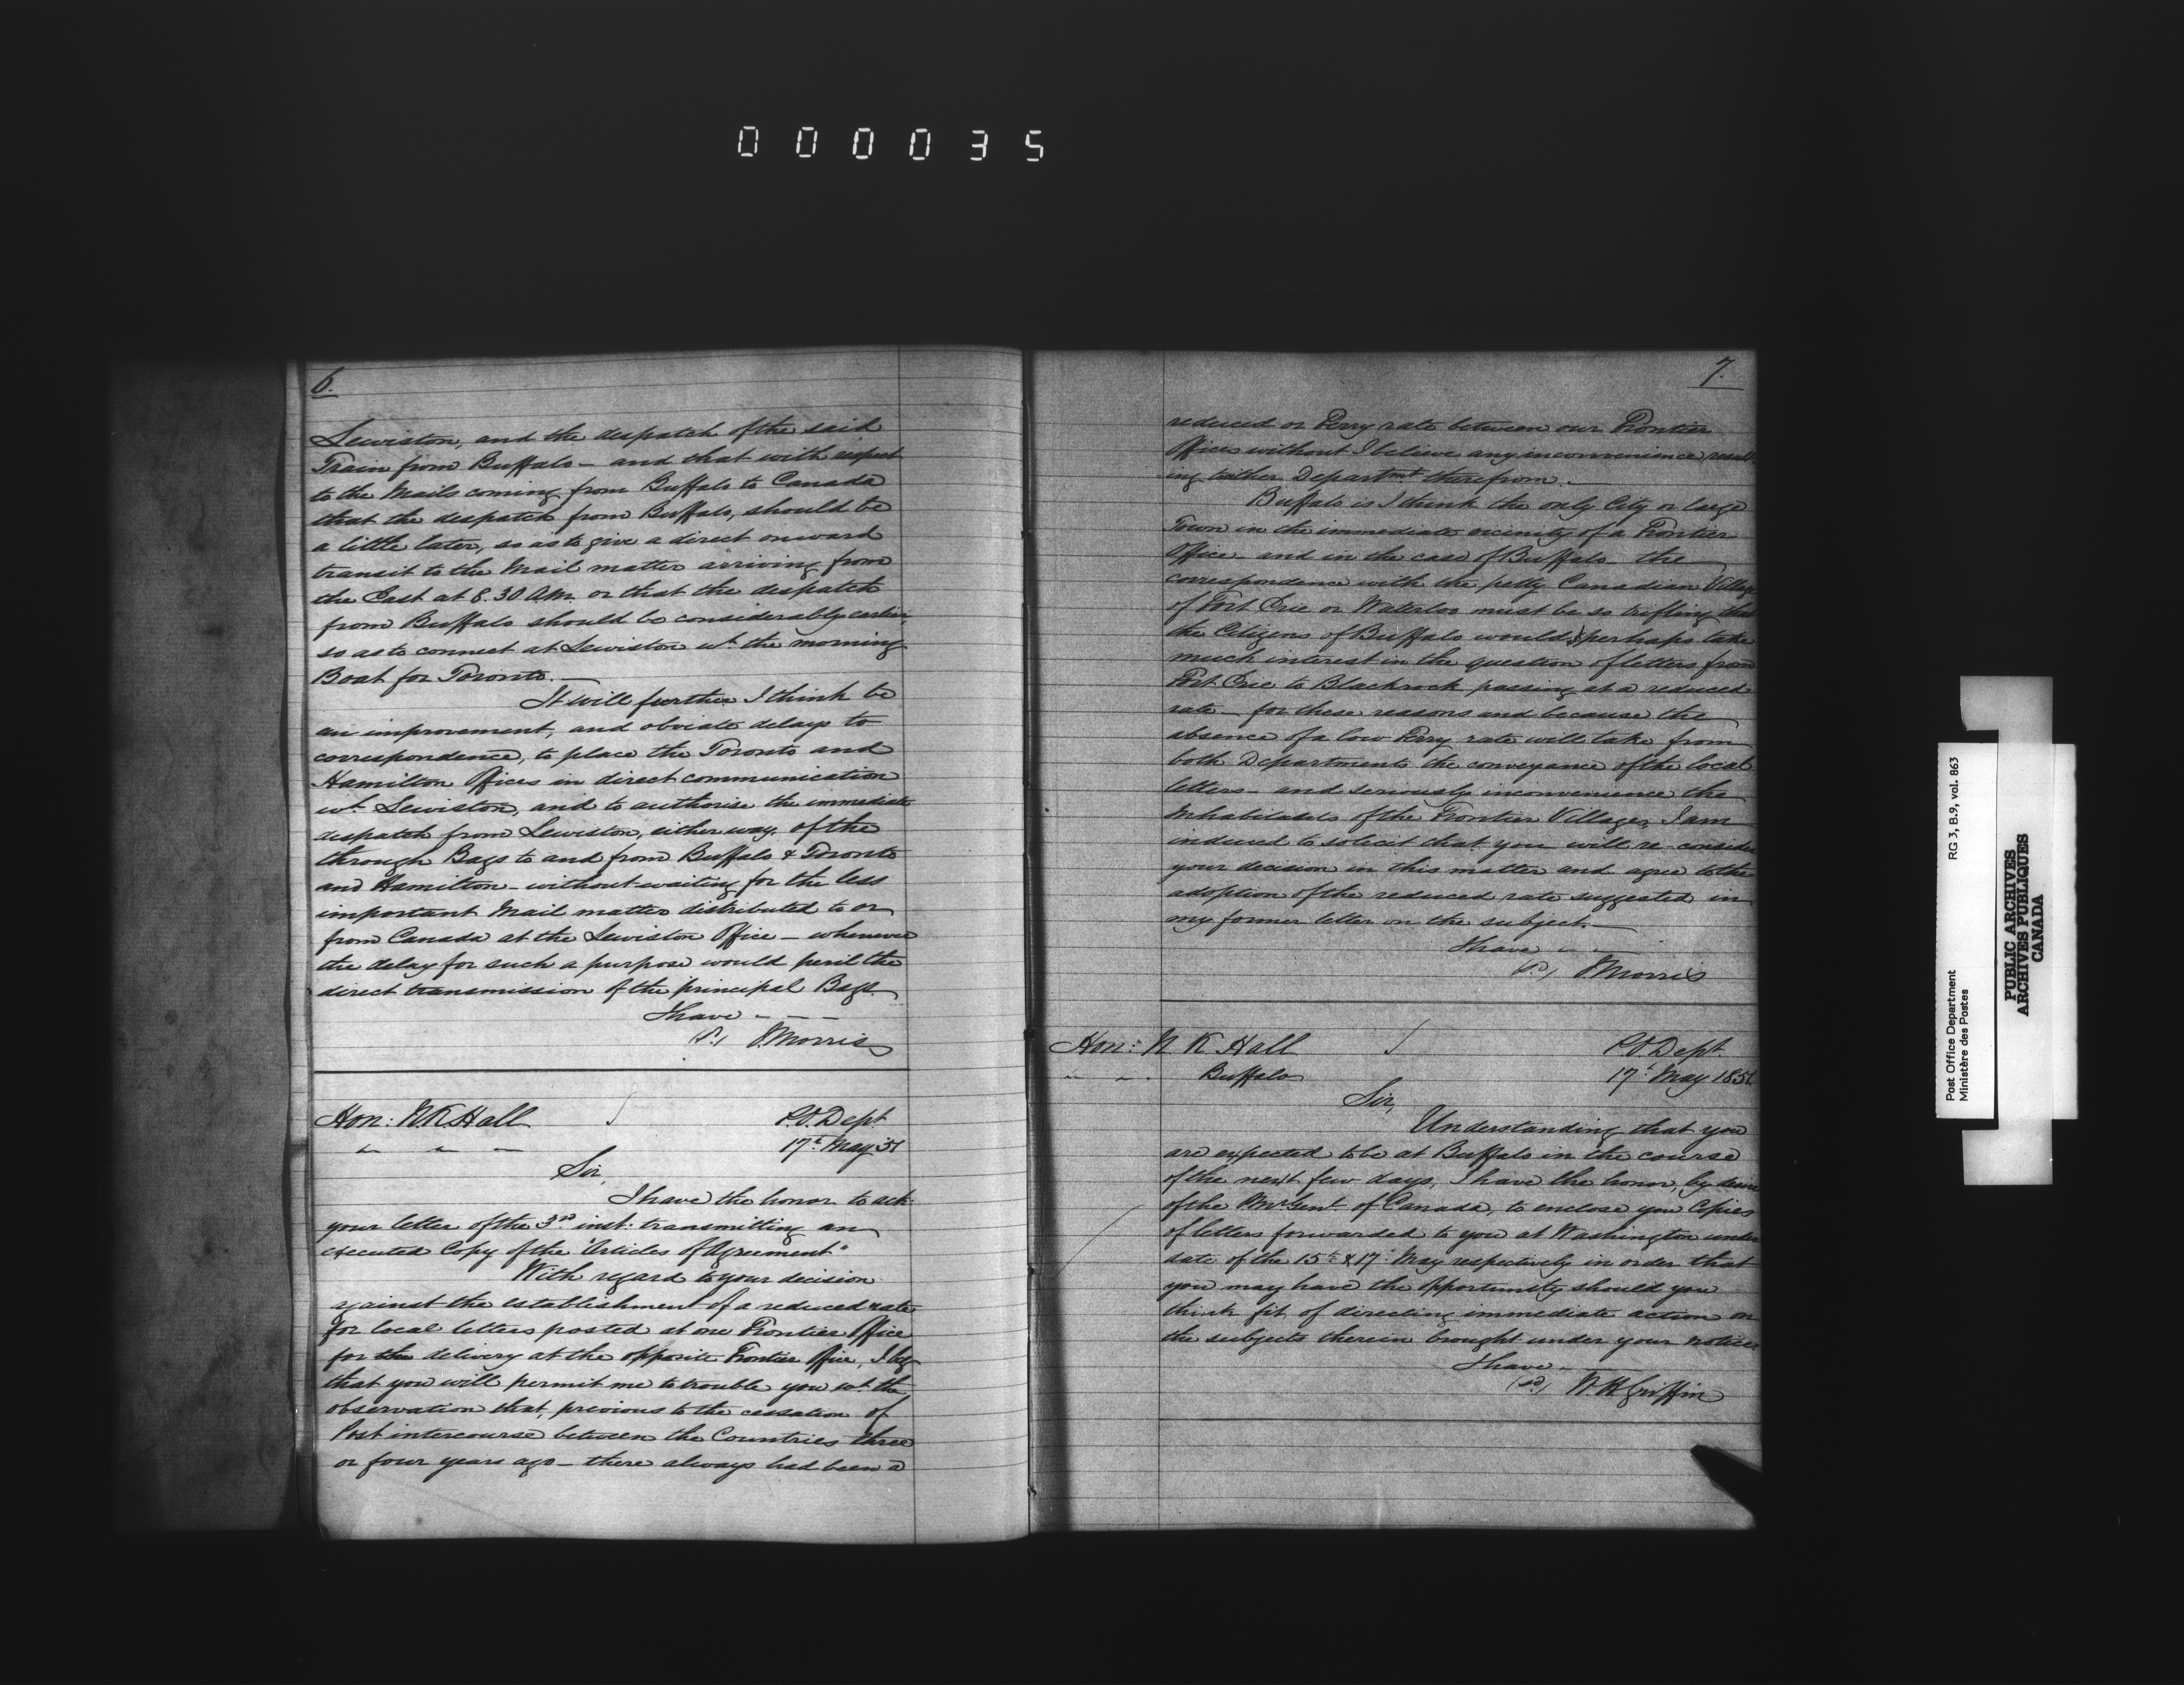 000035
6.
Lewiston, and the despatch of the said
Train from Buffalo – and that with respect
to the Mails coming from Buffalo to Canada
that the despatch from Buffalo, should be
a little later, so as to give a direct onward
transit to the Mail matter arriving from
the East at 8.30 AM. or that the despatch
from Buffalo should be considerably earlier,
so as to connect at Lewiston wt. the morning
Boat for Toronto. –
It will further I think be
an improvement, and obviate delays to
correspondence, to place the Toronto and
Hamilton Offices in direct communication
wt. Lewiston, and to authorise the immediate
despatch from Lewiston, either way, of the
through Bags to and from Buffalo & Toronto
and Hamilton – without waiting for the less
important Mail matter distributed to or
from Canada at the Lewiston Office – whenever
the delay for such a purpose would peril the
direct transmission of the principal Bags.
I have – – –
J. Morris
Hon: N. K. Hall
P.O. Dept
17t. May 51
Sir,
I have the honor to ack:
your letter of the 3rd inst: transmitting an
executed Copy of the "Articles of Agreement"
With regard to your decision
against the establishment of a reduced rate
for local letters posted at one Frontier Office
for the delivery at the opposite Frontier Office, I beg
that you will permit me to trouble you wt. the
observation that, previous to the cessation of
Post intercourse between the Countries three
or four years ago – there always had been a
7.
reduced or Ferry rate between our Frontier
Offices without I believe any inconvenience result-
ing to either Departmt therefrom. –
Buffalo is I think the only City or large
Town in the immediate vicinity of a Frontier
Office and in the case of Buffalo – the
correspondence with the petty Canadian Village
of Fort Erie or Waterloo must be so trifling that
the Citizens of Buffalo would perhaps take
much interest in the question of letters from
Fort Erie to Blackrock passing at a reduced
rate – for these reasons and because the
absence of a low Ferry rate will take from
both Departments the conveyance of the local
letters – and seriously inconvenience the
Inhabitants of the Frontier Villages, I am
induced to solicit that you will re-consider
your decision in this matter and agree to the
adoption of the reduced rate suggested in
my former letter on the subject. –
I have – –
(sd) J. Morris
Hon: N K Hall
P.O. Dept
Buffalo
17t. May 1851.
Sir,
Understanding that you
are expected to be at Buffalo in the course
of the next few days, I have the honor, by desire
of the PMr Genl. of Canada, to enclose you Copies
of letters forwarded to you at Washington under
date of the 15th & 17t May respectively in order that
you may have the opportunity should you
think fit of directing immediate action on
the subjects therein brought under your notice.
I have –
(sd) W. H. Griffin
Post Office Department RG 3, B.9, vol. 863
Ministère des Postes
PUBLIC ARCHIVES
ARCHIVES PUBLIQUES
CANADA